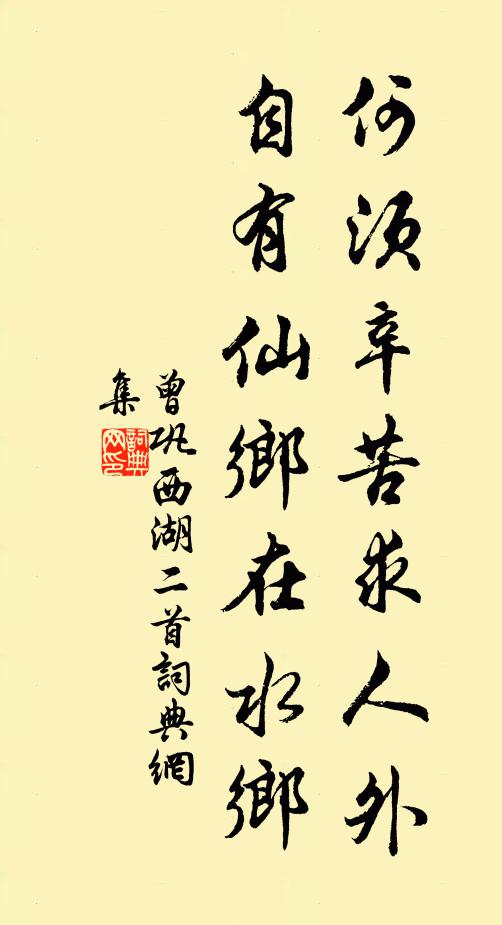 何須辛苦求人外
自有仙鄉在水鄉
曾巩西湖二首詞典網
集
詞典网印